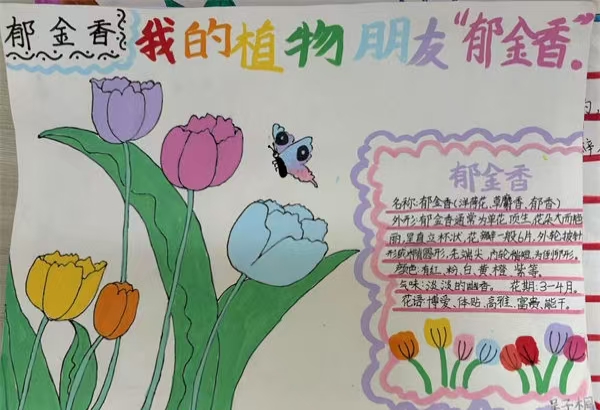 郁金香
我的植物朋友"郁金香"。
郁金香
名称:郁金香(洋荷花、草麝香、郁香)
外形:郁金香通常为单花,顶生,花朵大而艳
丽,呈直立杯状,花瓣一般6片,外轮披针
形或椭圆形,先端尖,内轮稍短,为倒卵形。
颜色:有红、粉、白、黄、橙、紫等。
气味:淡淡的幽香。 花期:3-4月。
花语:博爱、体贴、高雅、富贵、能干。